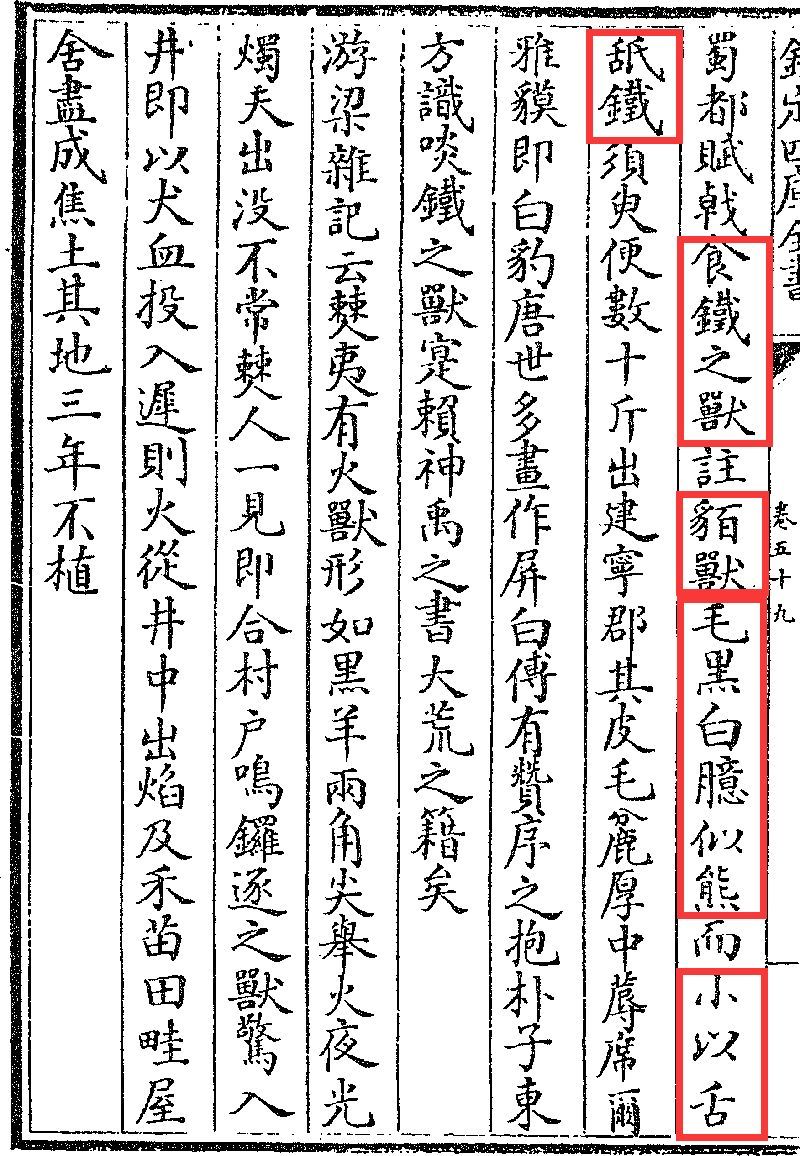 欽定四庫全書
卷五十九
蜀都賦戟食鐵之獸註貊獸毛黑白臆似熊而小以舌
舐鐵須臾便數十斤出建寧郡其皮毛麄厚中蓐席爾
雅貘即白豹唐世多畫作屏白傅有贊序之抱朴子東
方識啖鐵之獸寔賴神禹之書大荒之籍矣
游梁雜記云僰夷有火獸形如黑羊兩角尖舉火夜光
燭天出没不常僰人一見即合村戶鳴鑼逐之獸驚入
井即以犬血投入遲則火從井中出焰及禾苗田畦屋
舍盡成焦土其地三年不植